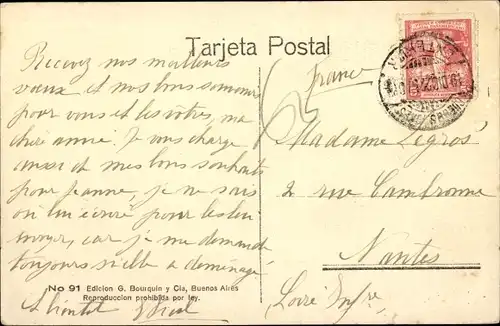 Tarjeta Postal
Recevez nos meilleurs
vœux et nos bons souvenirs
pour vous et les vôtres, ma
chère amie. Je vous charge
aussi et mes bons souhaits
pour Jeanne, je ne sais
où lui écrire pour les lui
envoyer, car je me demande
toujours si elle a déménagé
No 91 Edicion G. Bourquin y Cia, Buenos Aires
Reproduccion prohibida por ley.
A bientôt
France
Madame Legros
2 rue Cambronne
Nantes
Loire Infre